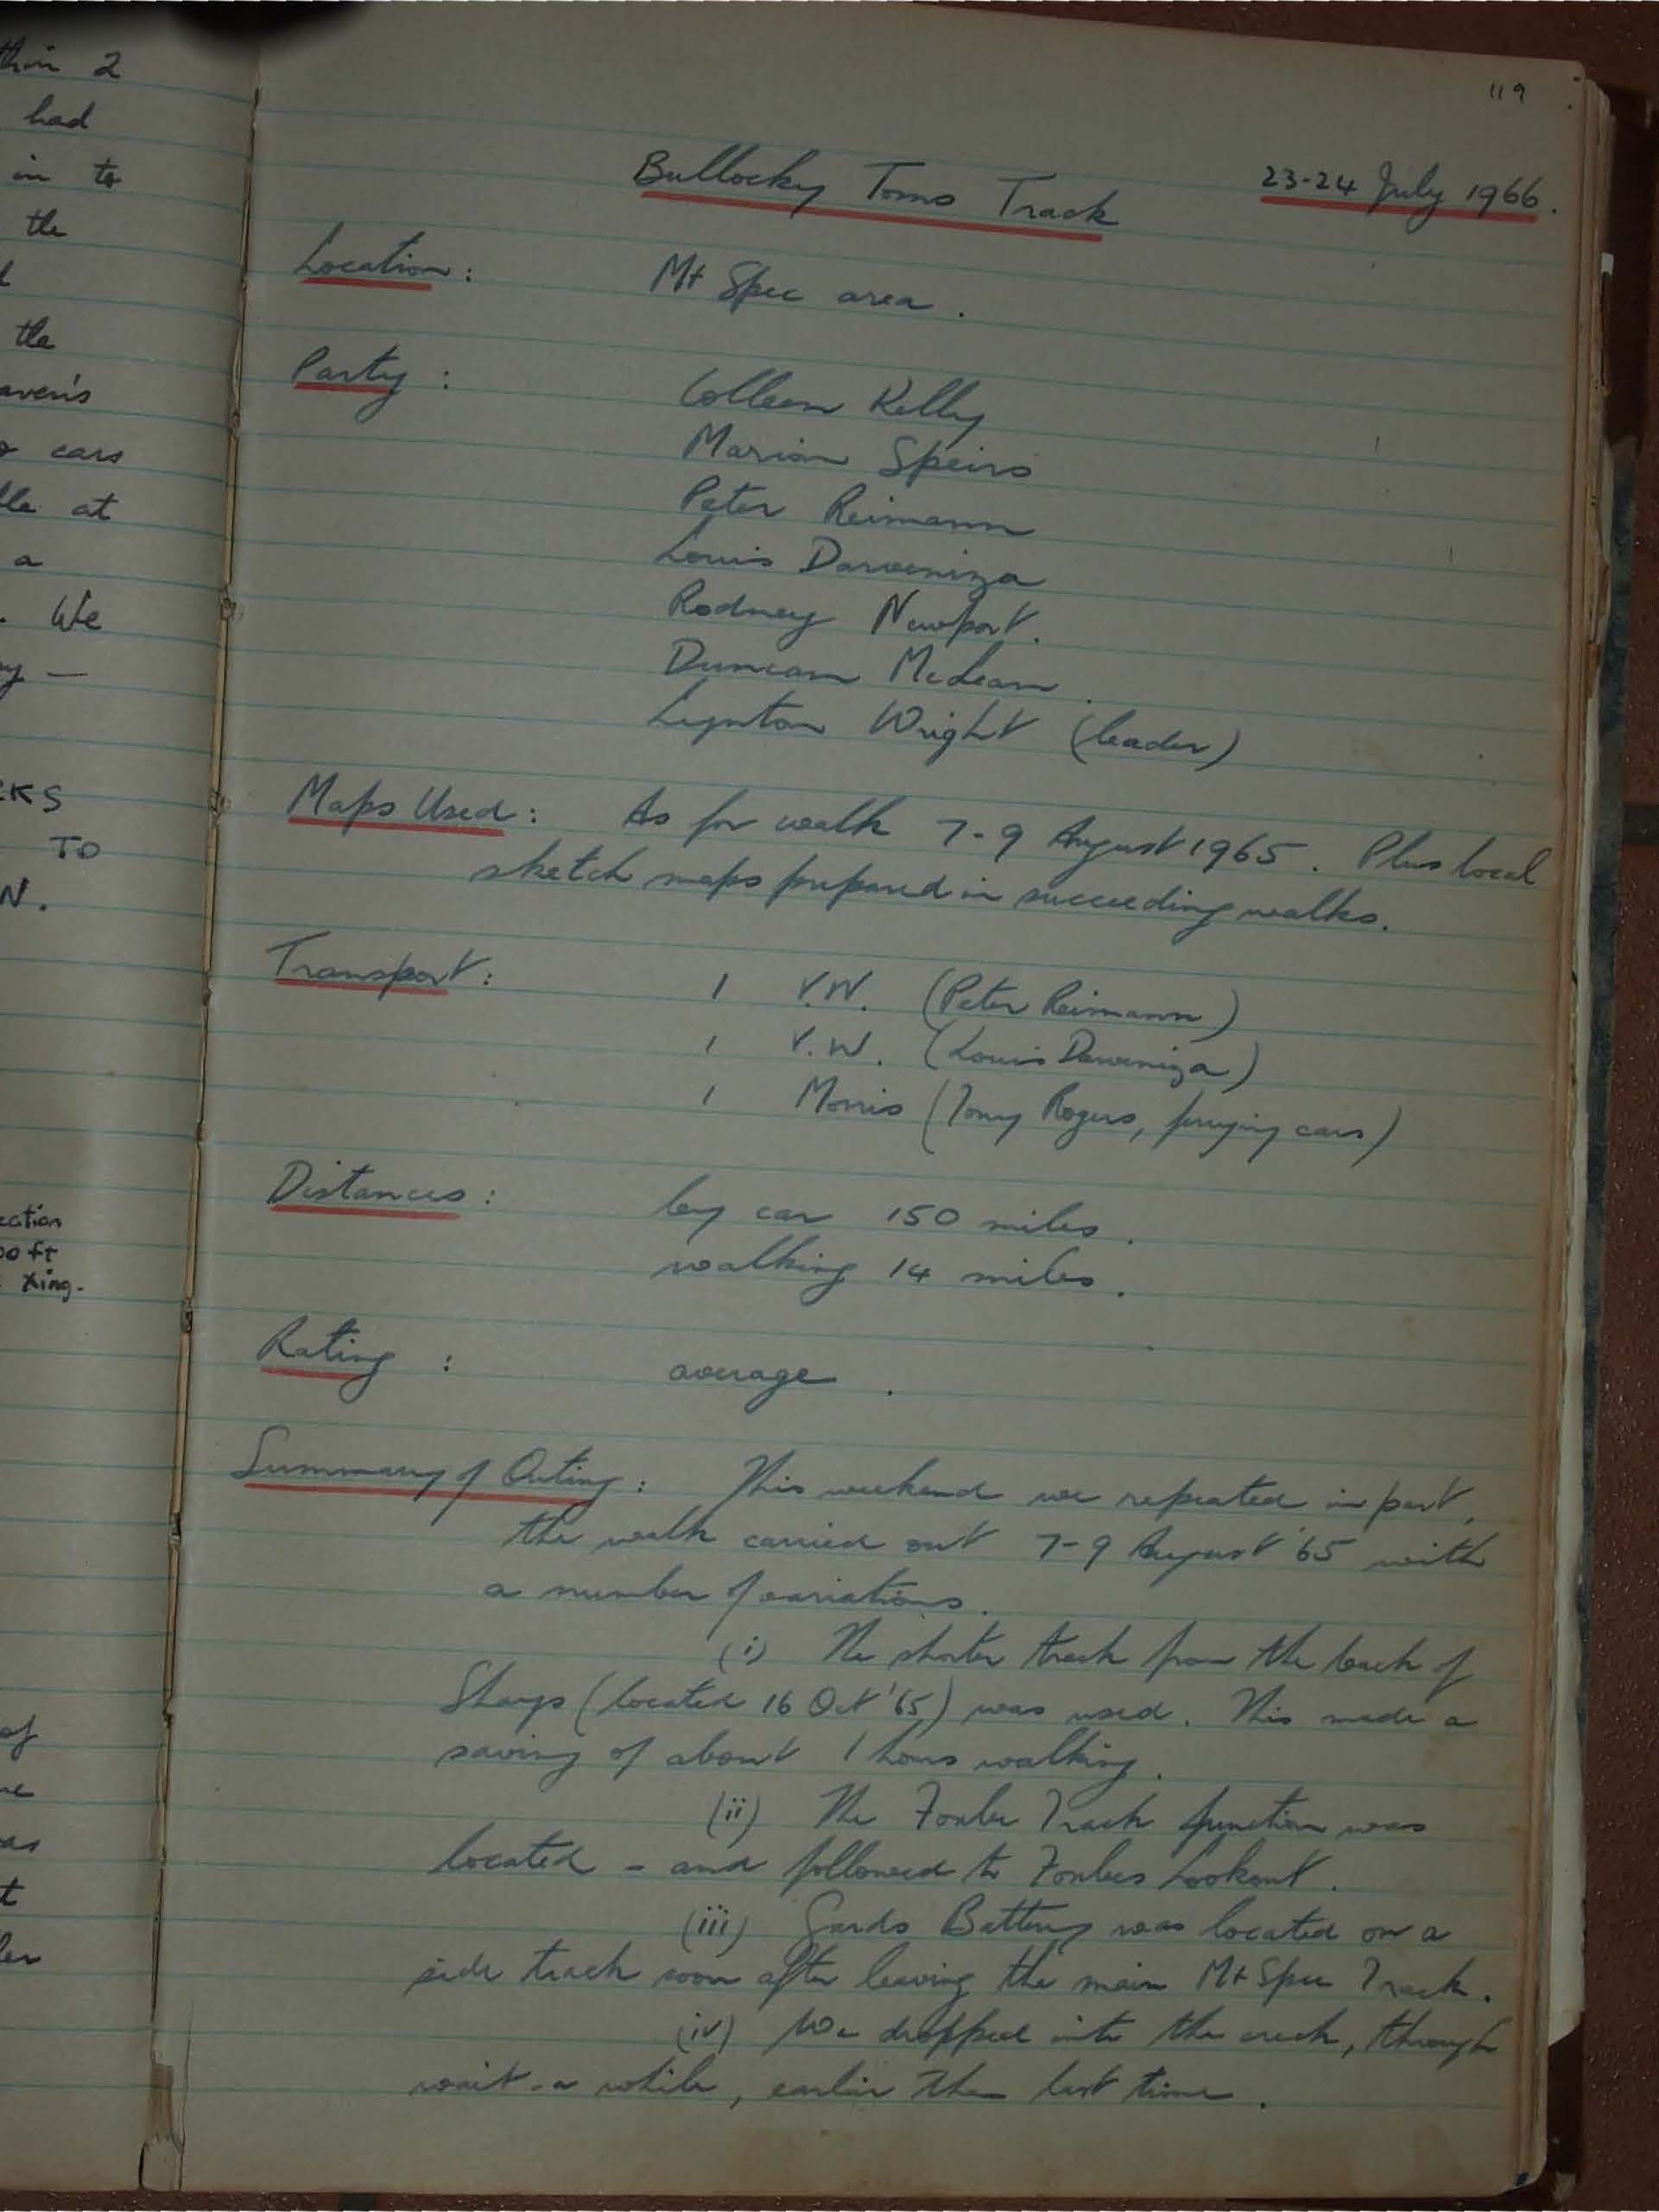 thin 2
had
in to
the
the
aven's
cars
at
a
. We
—
CKS
TO
N.
ection
00 ft
Xing.
of
119
Bullocky Toms Track 23-24 July 1966.
Location: Mt Spec area.
Party: Colleen Kelly
Marion Speirs
Peter Reimann
Louis Darveniza
Rodney Newport.
Duncan McLean.
Lynton Wright (leader)
Maps Used: As for walk 7-9 August 1965. Plus local
sketch maps prepared in succeeding walks.
Transport: 1 V.W. (Peter Reimann)
1 V.W. (Louis Darveniza)
1 Morris (Tony Rogers, ferrying cars)
Distances: by car 150 miles.
walking 14 miles.
Rating: average.
Summary of Outing: This weekend we repeated in part,
the walk carried out 7-9 August '65 with
a number of variations.
(i) The shorter track from the back of
(located 16 Oct '65) was used. This made a
saving of about 1 hours walking.
(ii) The Track junction was
located - and followed to Lookout.
(iii) Battery was located on a
side track soon after leaving the main Mt Spec Track.
(iv) We dropped into the creek, through
wait-a while, earlier than last time.